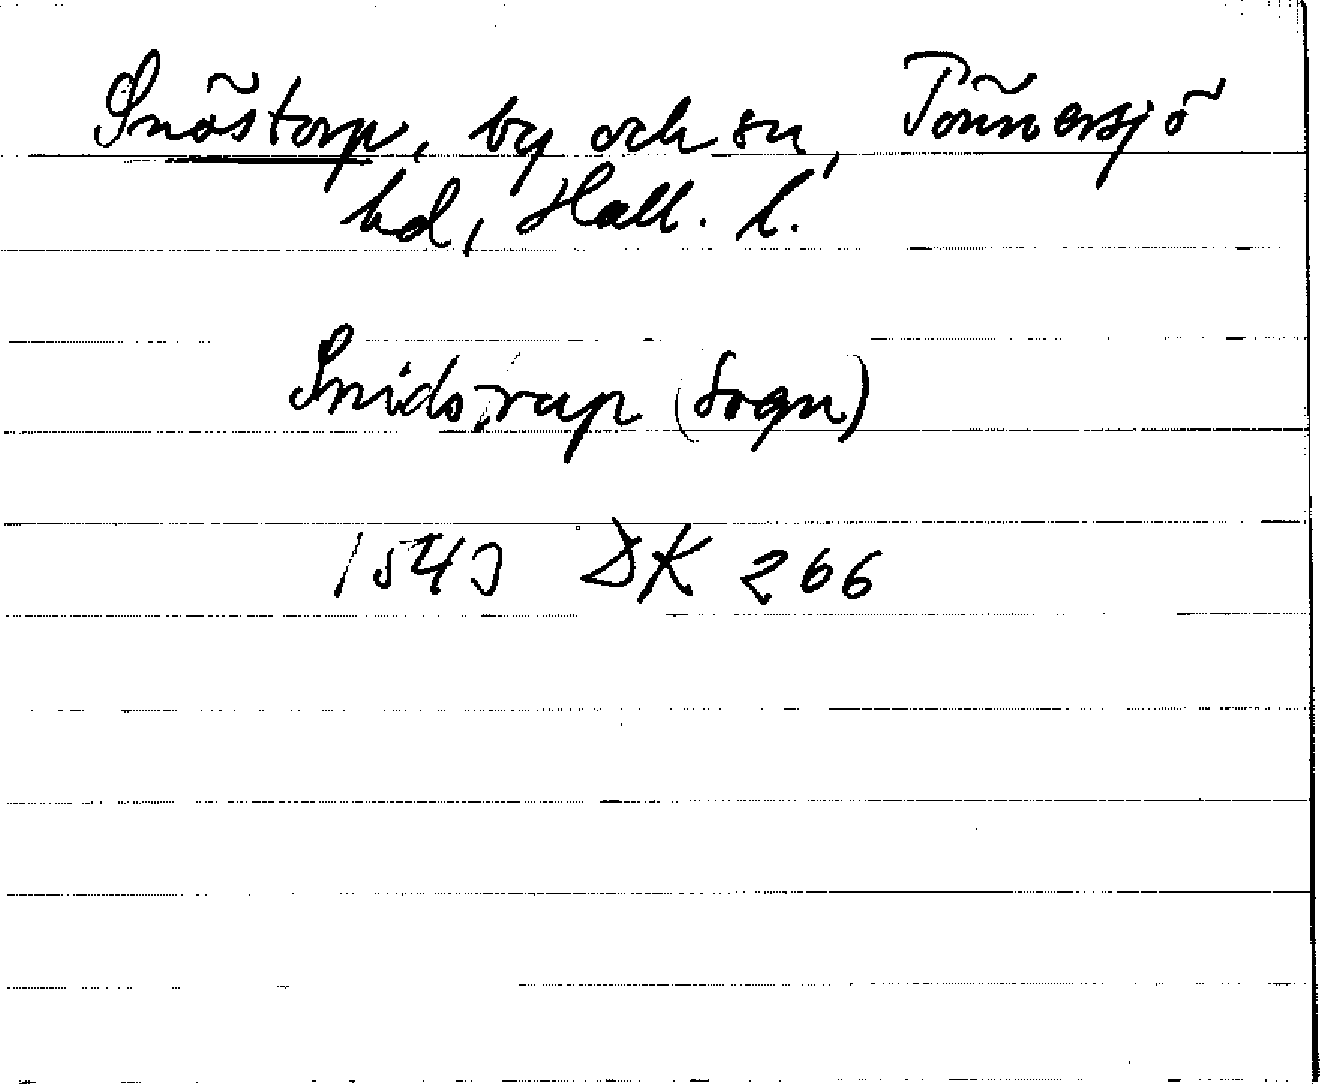 Snöstorp, by och sn, Tönnersjö
hd, Hall. l.
Snidstrup (Sogn)
1543 DK 266